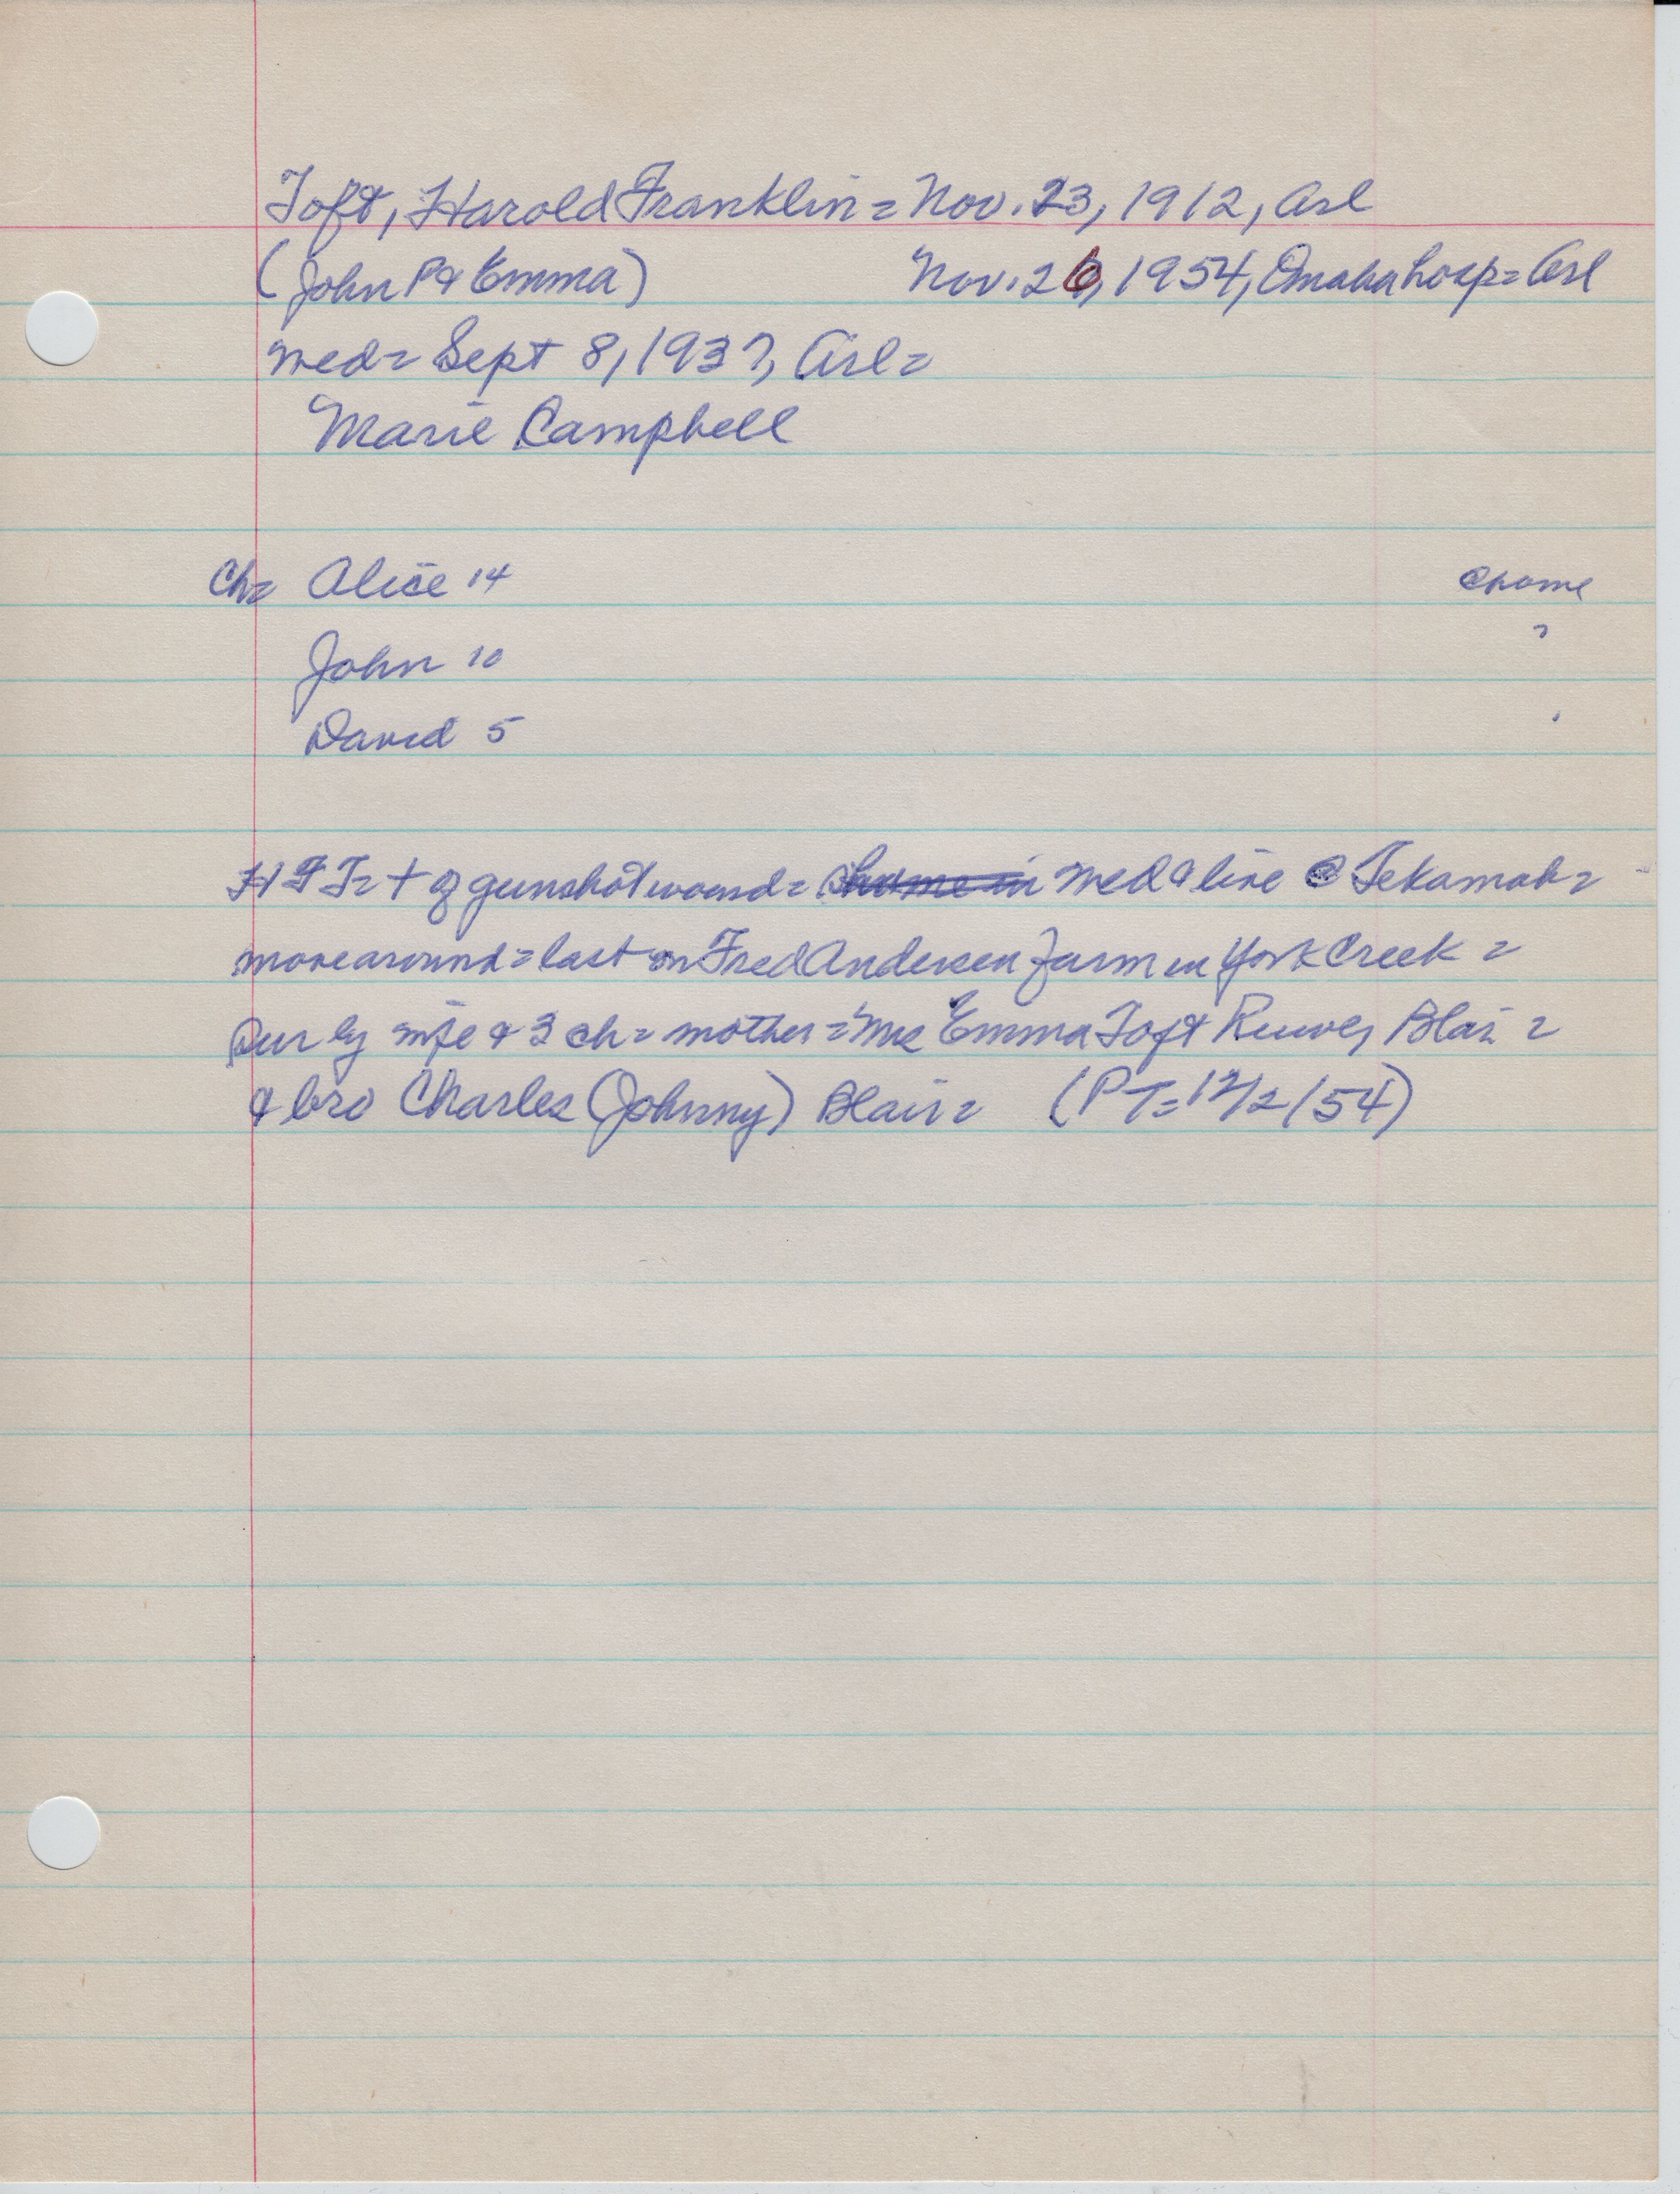 Toft, Harold Franklin = Nov. 23, 1912, Arl
(John P & Emma) Nov. 26, 1954, Omaha hosp = Arl
med = Sept 8, 193?, Arl =
Marie Campbell
Ch = Alice 14 @home
John 10 "
David 5 "
H F T = + of gunshot wound = med & live @ Tekamah =
move around = last on Fred Andersen farm in York Creek =
Sur by wife & 3 ch = mother = Mrs Emma Toft Ruwe, Blair =
& bro Charles (Johnny) Blair = (PT = 12/2/54)